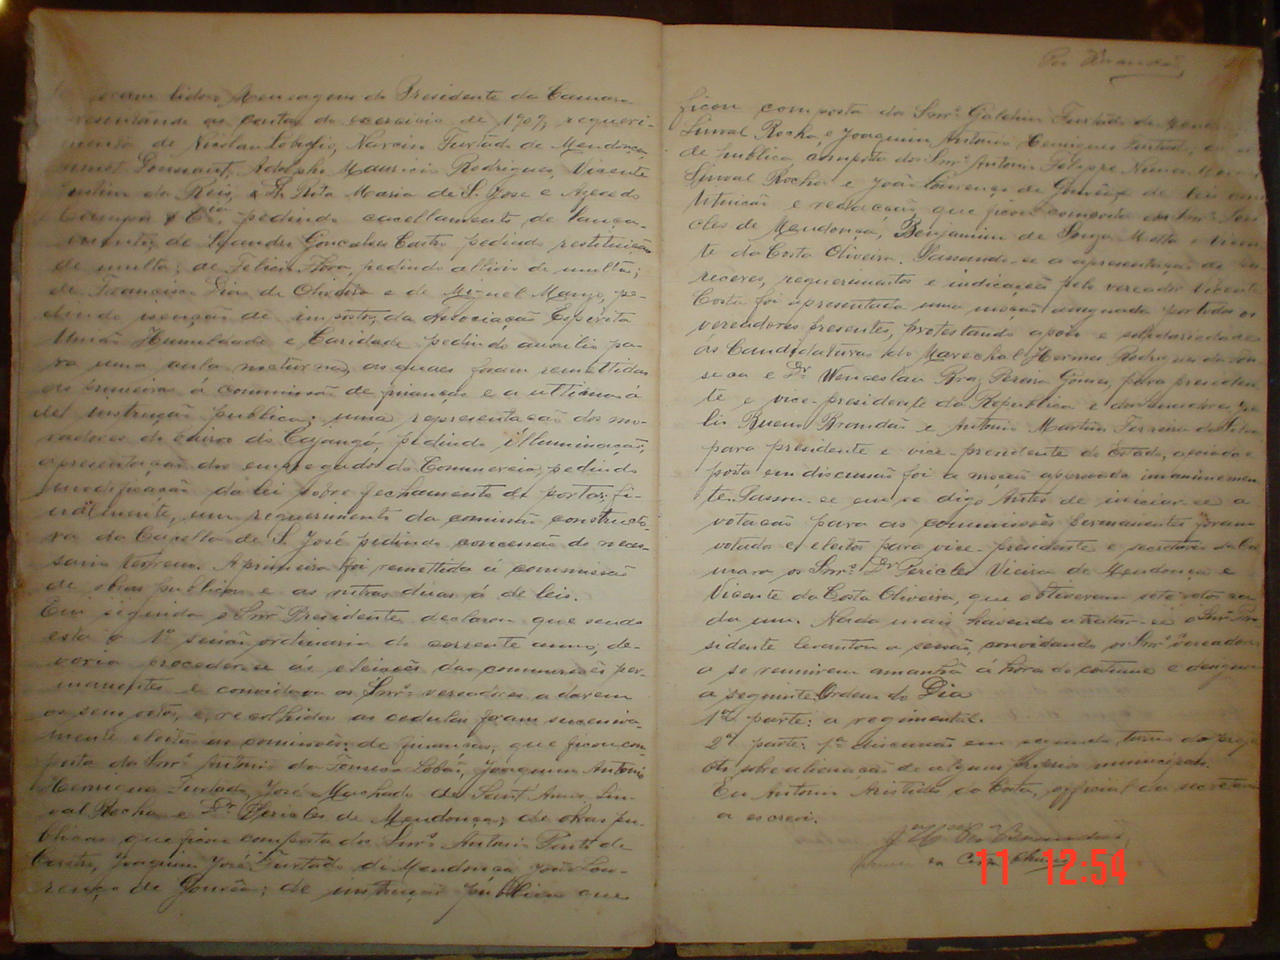 foram lidos, Mensagem do Presidente da Camara
as contas do exercicio de 1909, requeri-
mento de Nicolau Narciso Furtado de Mendonça,
Toussaint, Adolpho Mauricio Rodrigues, Vicente
dos Reis, D. Rita Maria de S. José e Azevedo
Campos & Cia. pedindo cancellamento de lança-
mento; de Leandro Gonçalves Castro pedindo restituição
de multa; de Felicio Flora, pedindo allivio de multa;
de Francisco Dias de Oliveira e de Miguel pe-
dindo isenção de imposto; da Associação Espirita
União Humildade e Caridade pedindo auxilio pa-
ra uma aula nocturna, os quaes foram remettidos
os primeiros á commissão de finanças e a ultima á
de instrucção publica; uma representação dos mo-
radores do bairro do Cajangá, pedindo illuminação,
apresentação dos empregados do Commercio, pedindo
modificação da lei sobre fechamento de portas; fi-
nalmente, um requerimento da comissão constructo-
ra da Capella de S. José pedindo concessão do neces-
sario terreno. A primeira foi remettida á commissão
de obras publicas e as outras duas á de leis.
Em seguida o Snr. Presidente declarou que sendo
esta a 1ª sessão ordinaria do corrente anno, de-
veria proceder-se as eleições das commissões per-
manentes e convidava os Snrs. vereadores a darem
os seus votos, e, recolhidas as cedulas foram successiva-
mente eleitas as comissões: de finanças, que ficou com-
posta dos Snrs. Antonio da Fonseca Lobão, Joaquim Antonio
Henriques Furtado, José Machado de Sant'Anna, Sin-
val Rocha e Dr. Pericles de Mendonça; de obras pu-
blicas que ficou composta dos Snrs. Antonio Pinto de
Castro, Joaquim José Furtado de Mendonça, João Lou-
renço de Gouvêa; de instrucção publica que
ficou composta dos Snrs. Galdino Furtado de
Sinval Rocha, e Joaquim Antonio Henriques Furtado;
de publica, composta dos Snrs. Antonio Nunes
Sinval Rocha e João Lourenço de Gouvêa; de leis
e redacção, que ficou composta dos Snrs. Peri-
cles de Mendonça, Benjamim de Souza Motta e Vicen-
te da Costa Oliveira. Passando-se a apresentação de pa-
receres, requerimentos e indicação pelo vereador Vicente
Costa foi apresentada uma moção assignada por todos os
vereadores presentes, protestando apoio e solidariedade
ás Candidaturas do Marechal Hermes Rodrigues da Fon-
seca e Dr. Wenceslau Braz Pereira Gomes, para presiden-
te e vice-presidente da Republica e dos senadores Ju-
lio Bueno Brandão e Antonio Martins Ferreira da Silva
para presidente e vice-presidente do Estado, apoiada e
posta em discussão foi a moção approvada unanimemen-
te. Passou-se em se digo Antes de iniciar-se a
votação para as commissões permanentes foram
votados e eleitos para vice-presidente e secretario da Ca-
mara os Snrs. Dr. Pericles Vieira de Mendonça e
Vicente da Costa Oliveira, que obtiveram sete votos ca-
da um. Nada mais havendo a tratar-se o Snr. Pre-
sidente levantou a sessão, convidando os Snrs. vereadores
a se reunirem amanhã á hora do costume e designou
a seguinte Ordem do Dia
1ª parte: a regimental.
2ª parte: 1ª discussão em segundo turno do proje-
cto sobre alienação de alguns proprios municipaes.
Eu Antonio Aristides da Costa, official da secretaria
a escrevi.
11 12:54